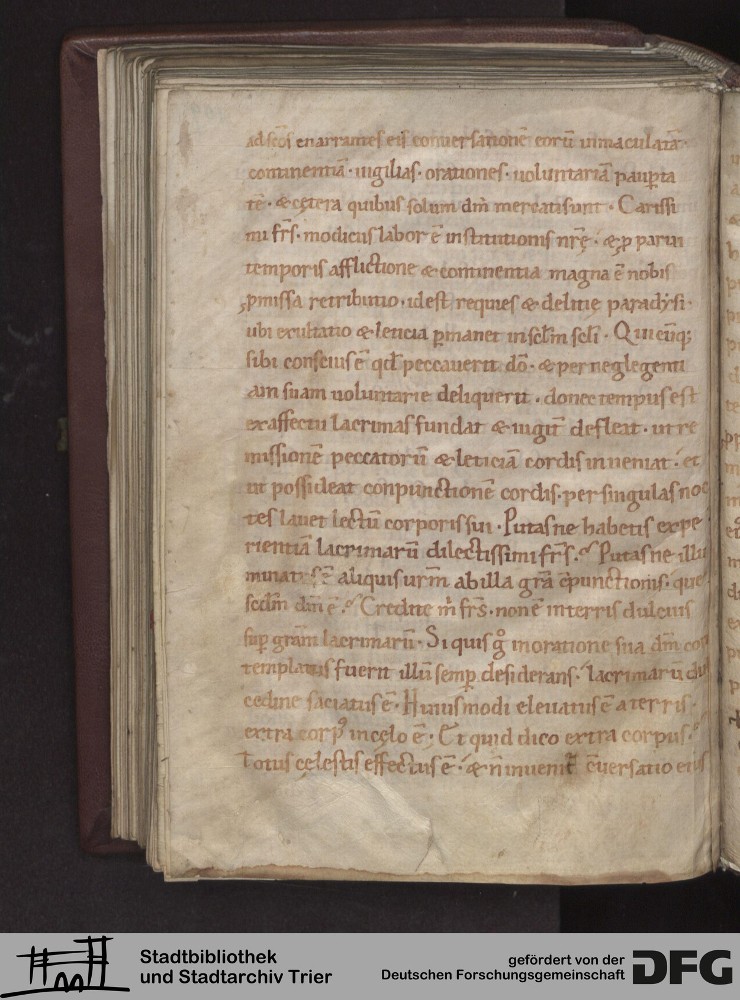 ad sc̄os enarrantes eis conuersationē eorū inmaculatā·
continentiā· uigilias· orationes· uoluntariā paup̲ta
tē· & cętera quibus solum dm̄ mercati sunt· Carissi
mi frs̄· modicus labor ē institutionis nrę̄· & p̲ parui
temporis afflictione & continentia magna ē nobis
ꝓmissa retributio· idest requies & delitię paradysi·
ubi exultatio & leticia p̲manet in sclm̄ scli̅· Qui cūq;
sibi conscius ē qd̄ peccauerit dō· & per neglegenti
am suam uoluntarie deliquerit· donec tempus est
ex affectu lacrimas fundat & iugit̄ defleat· ut re
missionē peccatorū & leticiā cordis inueniat· et
ut possideat conpunctionē cordis· per singulas noc
tes lauet lectū corporis sui· Putasne habetis expe
rientiā lacrimarū dilectissimi frs̄· Putasne illu
minatꝰ ē aliquis urm̄ ab illa grā c̄punctionis· quę
scdm̄ dm̄ ē· Credite m̄ frs̄· non ē in terris dulcius
sup̲ grām lacrimarū· Si quis g̊ in oratione sua dm̄ con
templatus fuerit illū semp̲ desiderans· lacrimarū dul
cedine saciatus ē· Huiusmodi eleuatus ē a terris·
extra corpꝰ in cęlo ē· Et quid dico extra corpus·
Totus cęlestis effectus ē· & n̄ inuenit̄ c̄uersatio eius
Stadtbibliothek
und Stadtarchiv Trier
gefördert von der
Deutschen Forschungsgemeinschaft
DFG